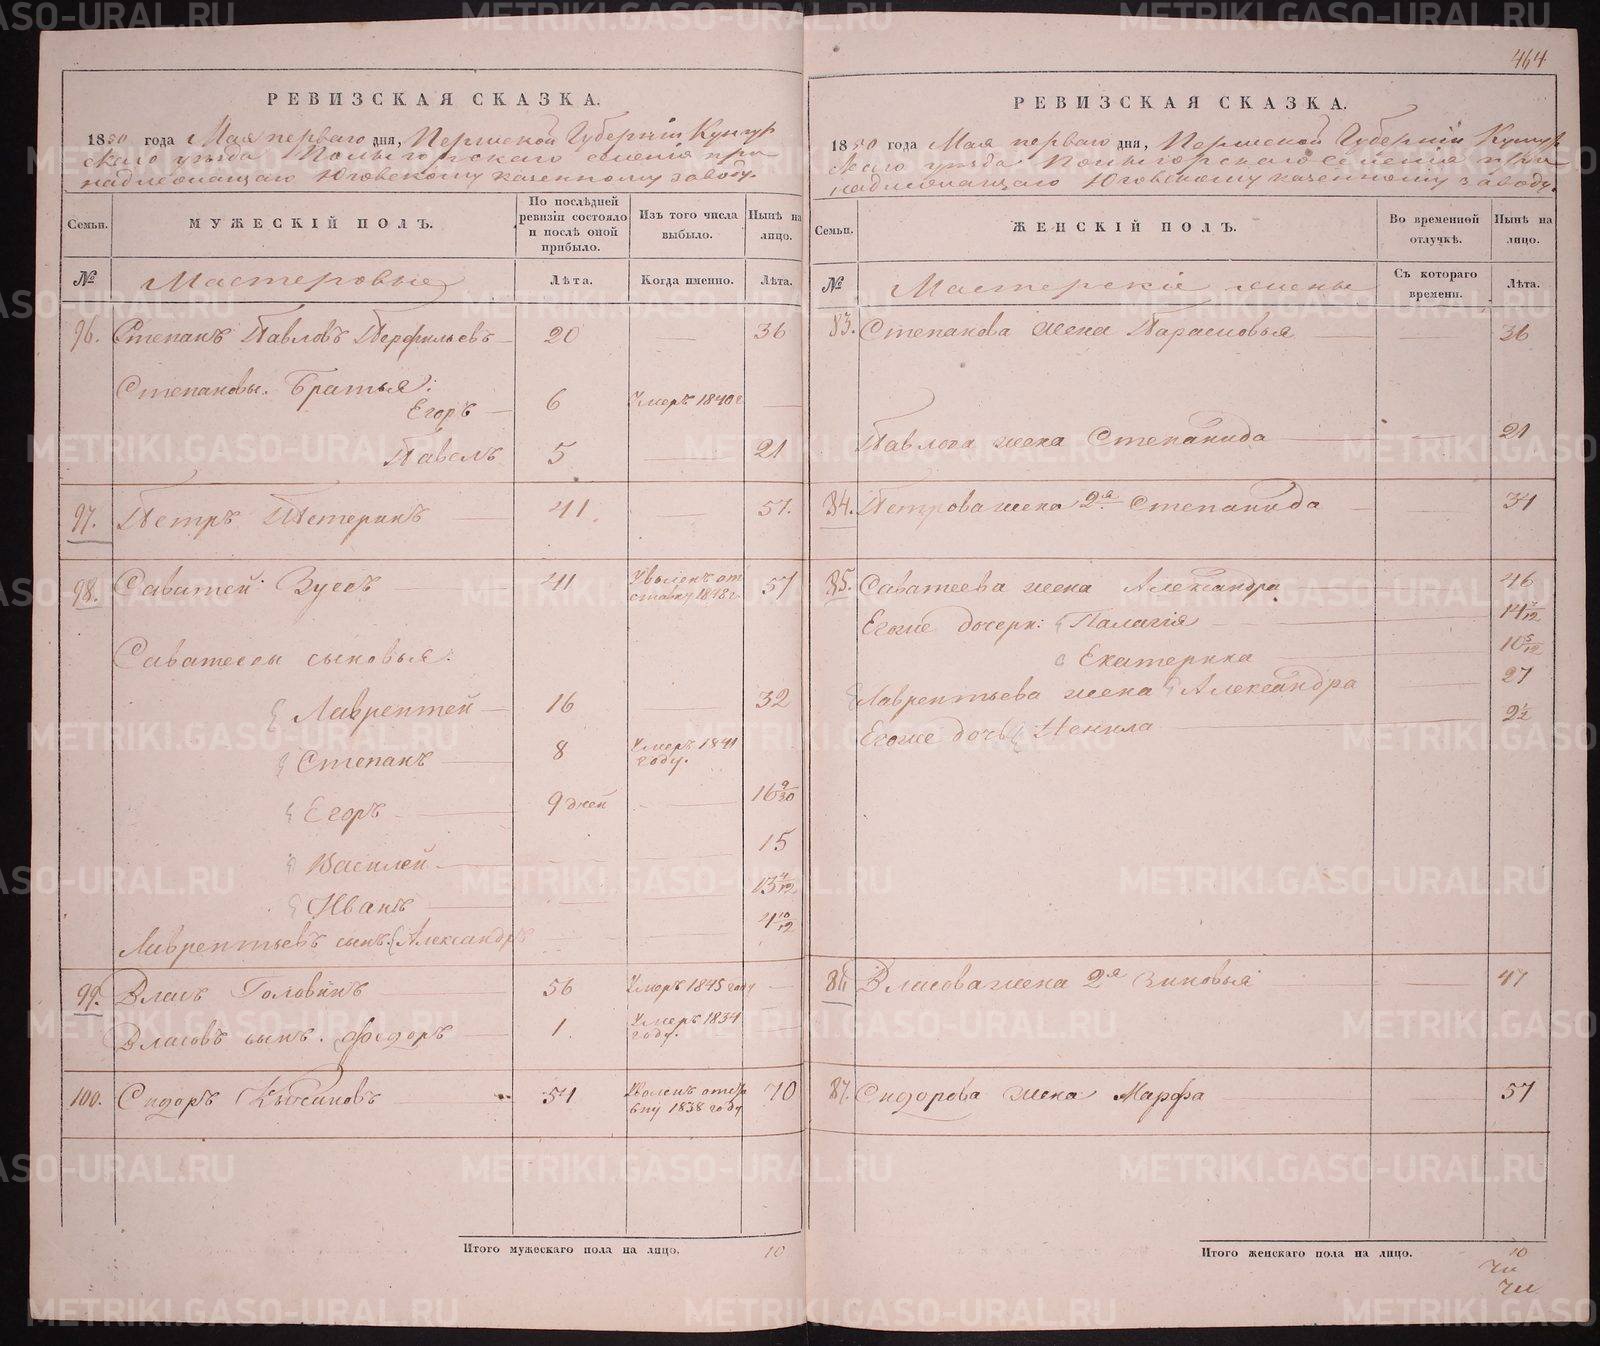 464
РЕВИЗСКАЯ СКАЗКА.
1850 года Мая перваго дня, Пермской Губернiи Кунгур
скаго уезда селенiя при
надлежащаго Юговскому казенному заводу.
Семьи. МУЖЕСКІЙ ПОЛЪ. По послѣдней ревизіи состояло и послѣ оной прибыло. Изъ того числа выбыло. Нынѣ на лицо.
№ Мастеровые Лѣта. Когда именно. Лѣта.
96. Степанъ Павловъ Перфильевъ 20 — 36
Степановы Братья:
Егоръ 6 Умеръ 1840 г —
Павелъ 5 — 21
97. Петръ 41 — 57.
98. Саватей 41 Уволенъ от
ставку 1848 г. 57
Саватеевы сыновья:
Лаврентей 16 32
Степанъ 8 Умеръ 1841
году.
Егоръ 9 дней — 16 9/30
Василей — 15
Иванъ — 13 7/12
Лаврентьевъ сынъ Александръ — 4 10/12
99. Власъ Головинъ 56 Умеръ 1845 году —
Власовъ сынъ Федоръ 1. Умеръ 1834
году. —
100. Сидоръ 54 Уволенъ
1838 году 70
Итого мужескаго пола на лицо. 10
РЕВИЗСКАЯ СКАЗКА.
1850 года Мая перваго дня, Пермской Губернiи Кунгур
скаго уезда селенiя при
надлежащаго Юговскому казенному заводу.
Семьи. ЖЕНСКІЙ ПОЛЪ. Во временной отлучкѣ. Нынѣ на лицо.
№ Мастерскiе жены Съ котораго времени. Лѣта.
83. Степанова жена Парасковья — 36
Павлова жена Степанида — 21
84. Петрова жена 2я Степанида — 34
85. Саватеева жена Александра — 46
Егоже дочери: Палагiя — 14 7/12
Екатерина — 10 5/12
Лаврентьева жена Александра — 27
Егоже дочь Ненила — 2 1/2
86. Власова жена 2я Зиновья — 47
87. Сидорова жена Марфа — 57
Итого женскаго пола на лицо. 10
METRIKI.GASO-URAL.RU